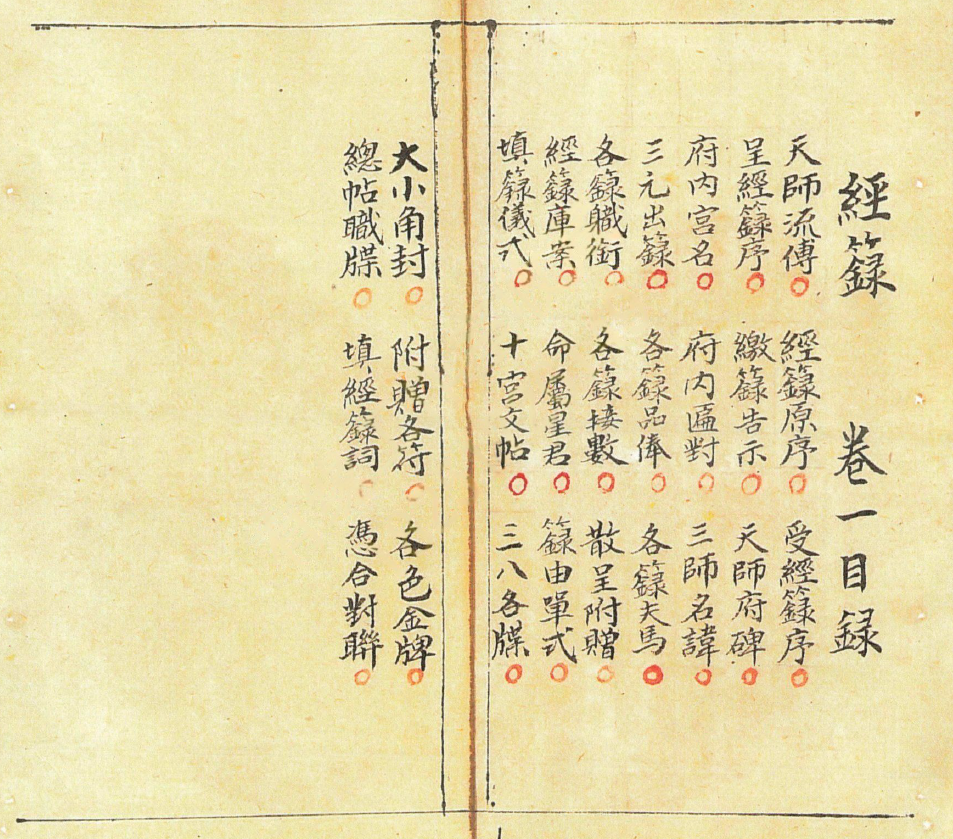 經籙 卷一目録
天師流傳 經籙原序 受經籙序
呈經籙序 繳籙告示 天師府碑
府內宮名 府內匾對 三師名諱
三元出籙 各籙品俸 各籙夫馬
各籙職銜 各籙接數 散呈附贈
經籙庫案 命屬星君 籙由單式
填籙儀式 十宮文帖 三八各牒
大小角封 附贈各符 各色金牌
總帖職牒 填經籙詞 憑合對聯